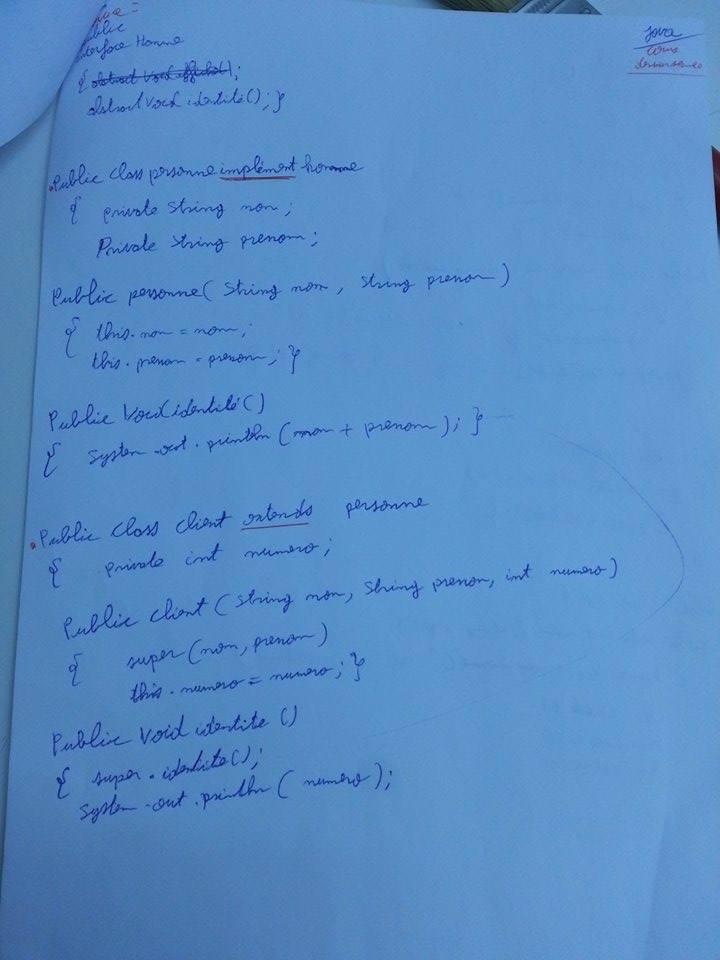 Java
cours
ublic
terface Homme
{ abstract void affiche();
abstract void identité(); }
Public class personne implément homme
{ private string nom;
Private string prenom;
Public personne( string nom, string prenom)
{ this.nom = nom;
this.prenom = prenom; }
Public void identité()
{ system.out.println (nom + prenom); }
Public class client extends personne
{ private int numero;
Public client ( string nom, string prenom, int numero)
{ super (nom, prenom)
this.numero = numero; }
Public void identite ()
{ super.identite();
system.out.println ( numero);